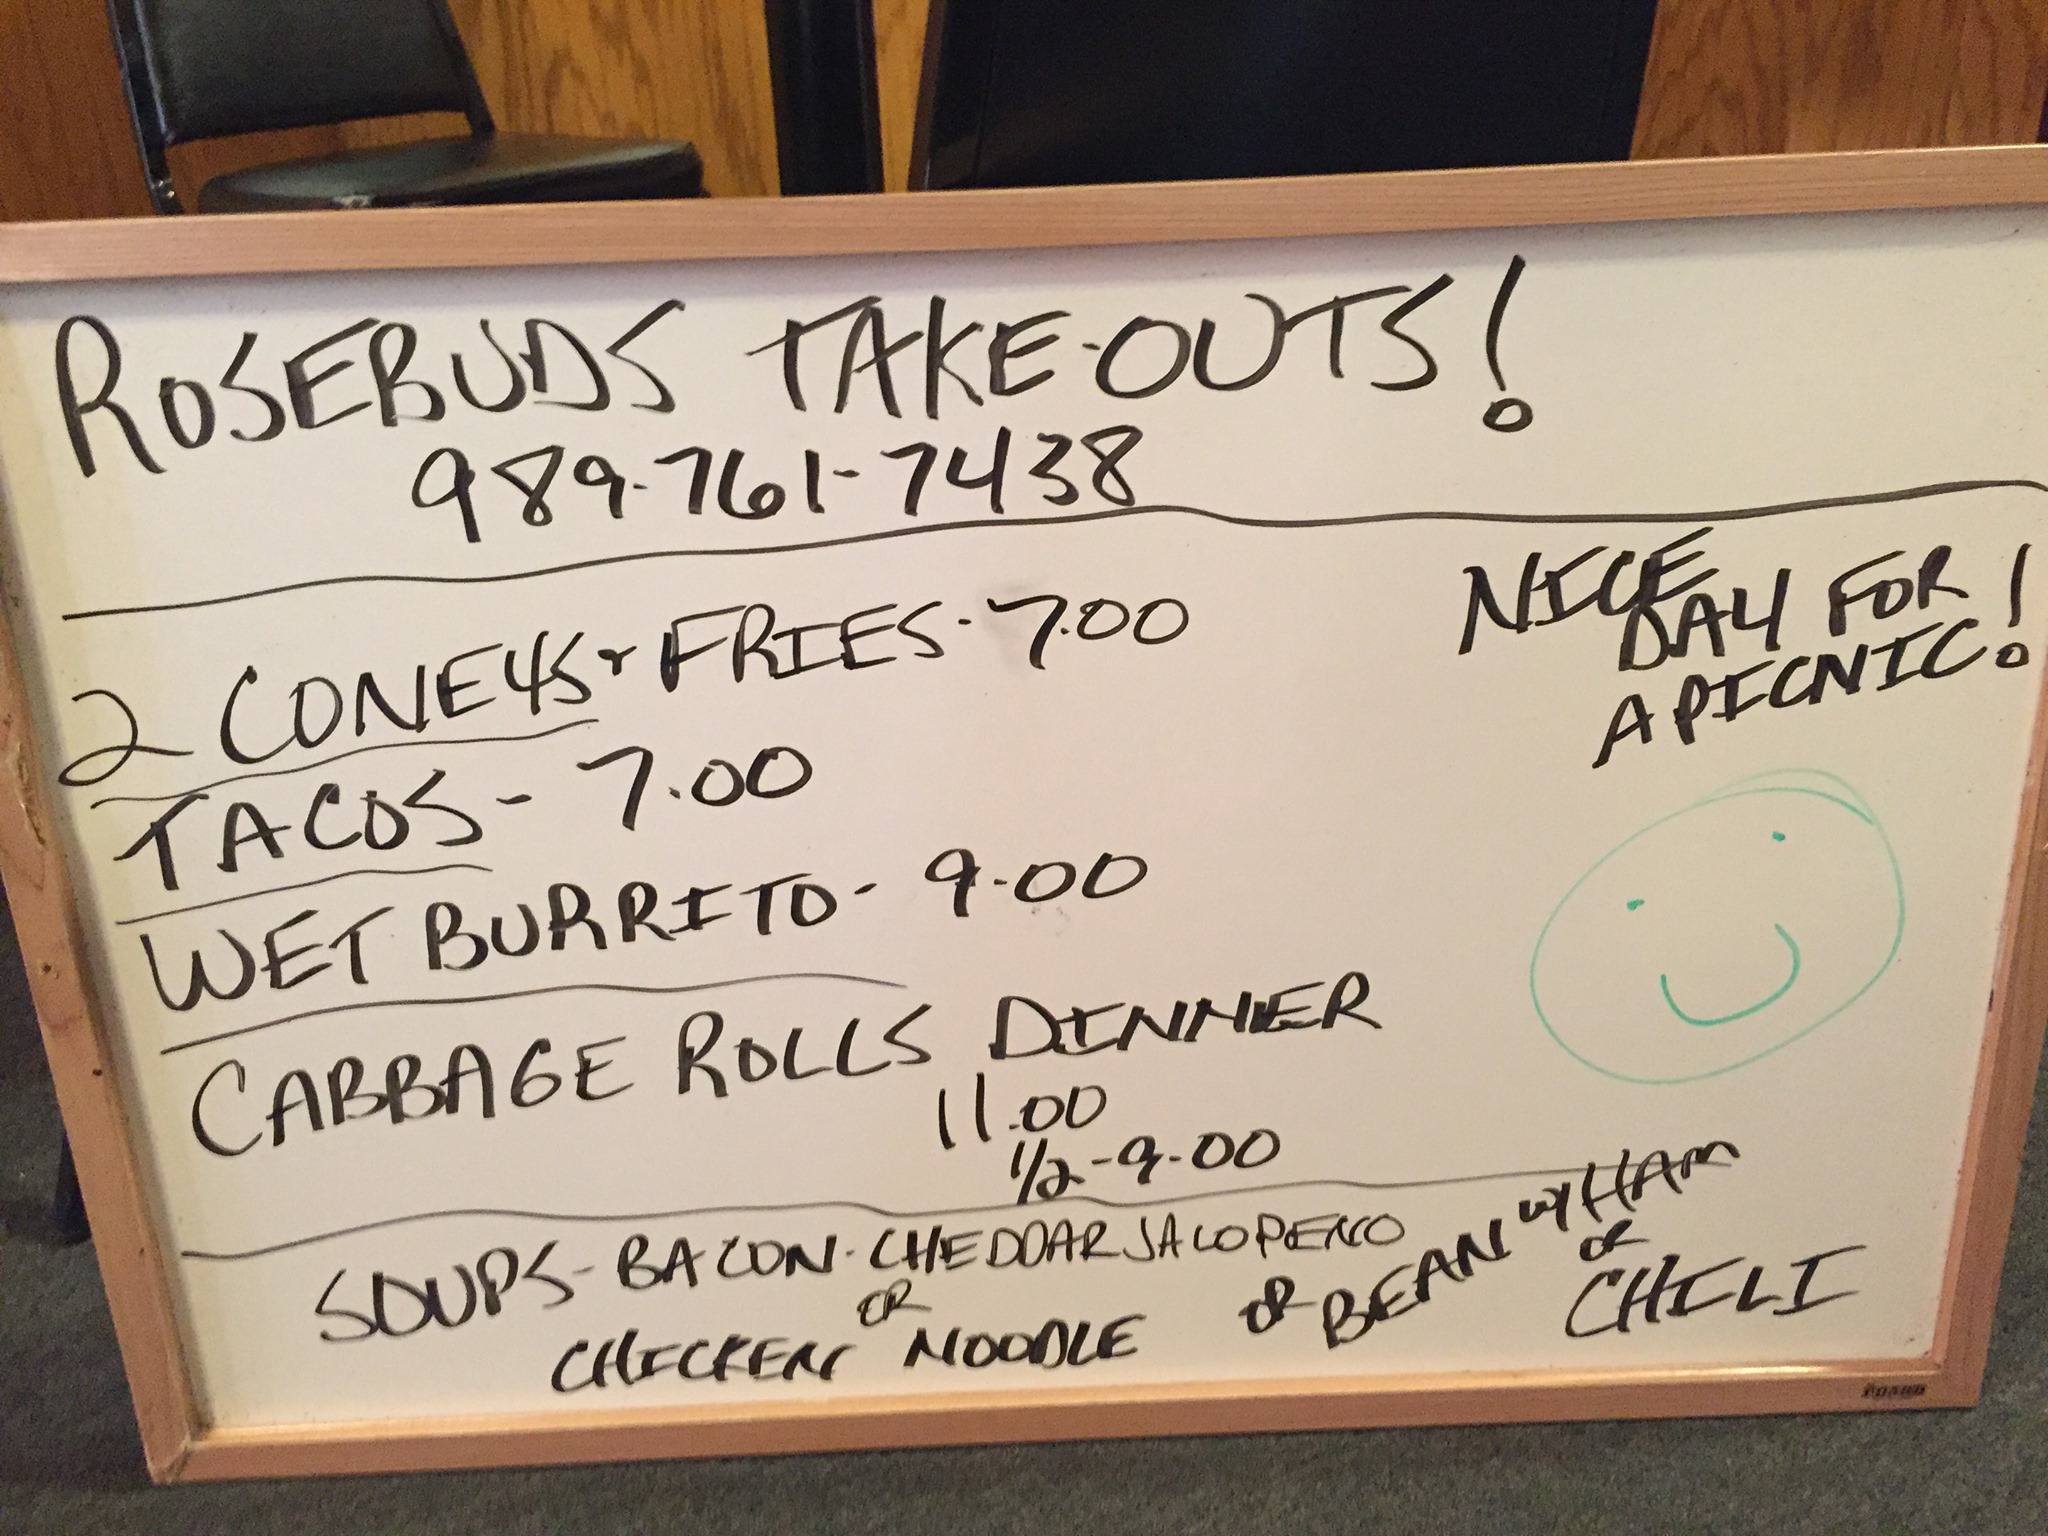 ROSEBUDS TAKE-OUTS!
989-761-7438
2 CONEYS + FRIES - 7.00
TACOS - 7.00
WET BURRITO - 9.00
CABBAGE ROLLS DINNER
11.00
1/2 - 9.00
NICE
DAY FOR
A PICNIC!
SOUPS - BACON - CHEDDAR JALOPENO
OR
CHICKEN NOODLE
OR BEAN W/ HAM
OR
CHILI